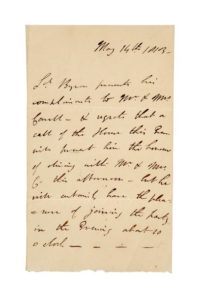 May 14th 1813 -
Ld. Byron presents his
compliments to Mr & Mrs
& regrets that a
call of the House this Eve
will prevent him the honour
of dining with Mr & Mrs.
this afternoon - but he
will certainly have the plea-
sure of joining the party
in the Evening about 10
o'clock - - - -